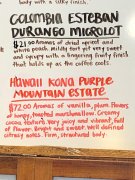 body with a silky finish.
COLOMBIA ESTEBAN
DURANGO MICROLOT
$21.00 Aromas of dried apricot and
white peach. Mildly tart yet very sweet
and syrupy with a lingering fruity finish
that holds up as the coffee cools.
HAWAII KONA PURPLE
MOUNTAIN ESTATE
$72.00 Aromas of vanilla, plum, flavors
of honey, toasted marshmallow. Creamy
cocoa texture. Very juicy and vibrant, full
of flavor. Bright and sweet. Well defined
citrusy notes. Firm, structured body.